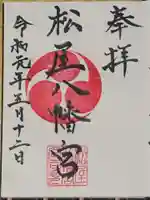 奉拝
松尾八幡宮
令和元年五月十二日